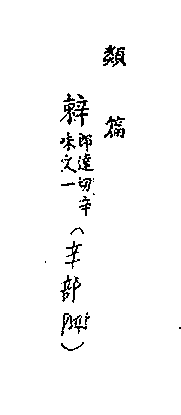 類篇
辣
郎達切辛
味文一
(辛部 )